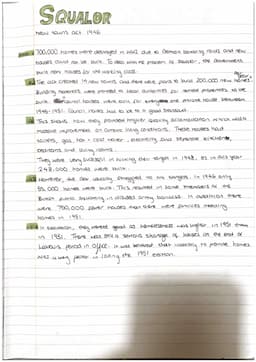 SQUALOR
New Towns Act 1946
700,000 homes were destroyed in WW2 due to German bombing raids and new
houses could not be built. To deal with the problem of squalor, the Government
built new homes for the working class.
The act created 14 new towns and there were plans to build 200,000 new homes a year.
Building materials were provided to local authorities for rented properties to be
built. Council houses were built for
1945-1951. Council homes had to be to a good standard.
This shows how they provided high quality accommodation which was a
massive improvement on
toilets, gas, hot + cold water, electricity and separate kitchens,
bedrooms and living rooms.
They were very successful in building their target in 1948, as in this year
homes were built.
However, the Labour Gov struggled to hit targets. In 1946 only
55,000 homes were built. This resulted in some members of the
British public squatting in disused army barracks. In addition there
were 700,000 fewer houses than there were families needing
homes in 1951.
In conclusion, they weren't good as homelessness was higher in 1951 than
in 1931. There was still a serious shortage of houses at the end of
Labour's period in office. It was believed their inability to provide homes
was a key factor in losing the 1951 election.